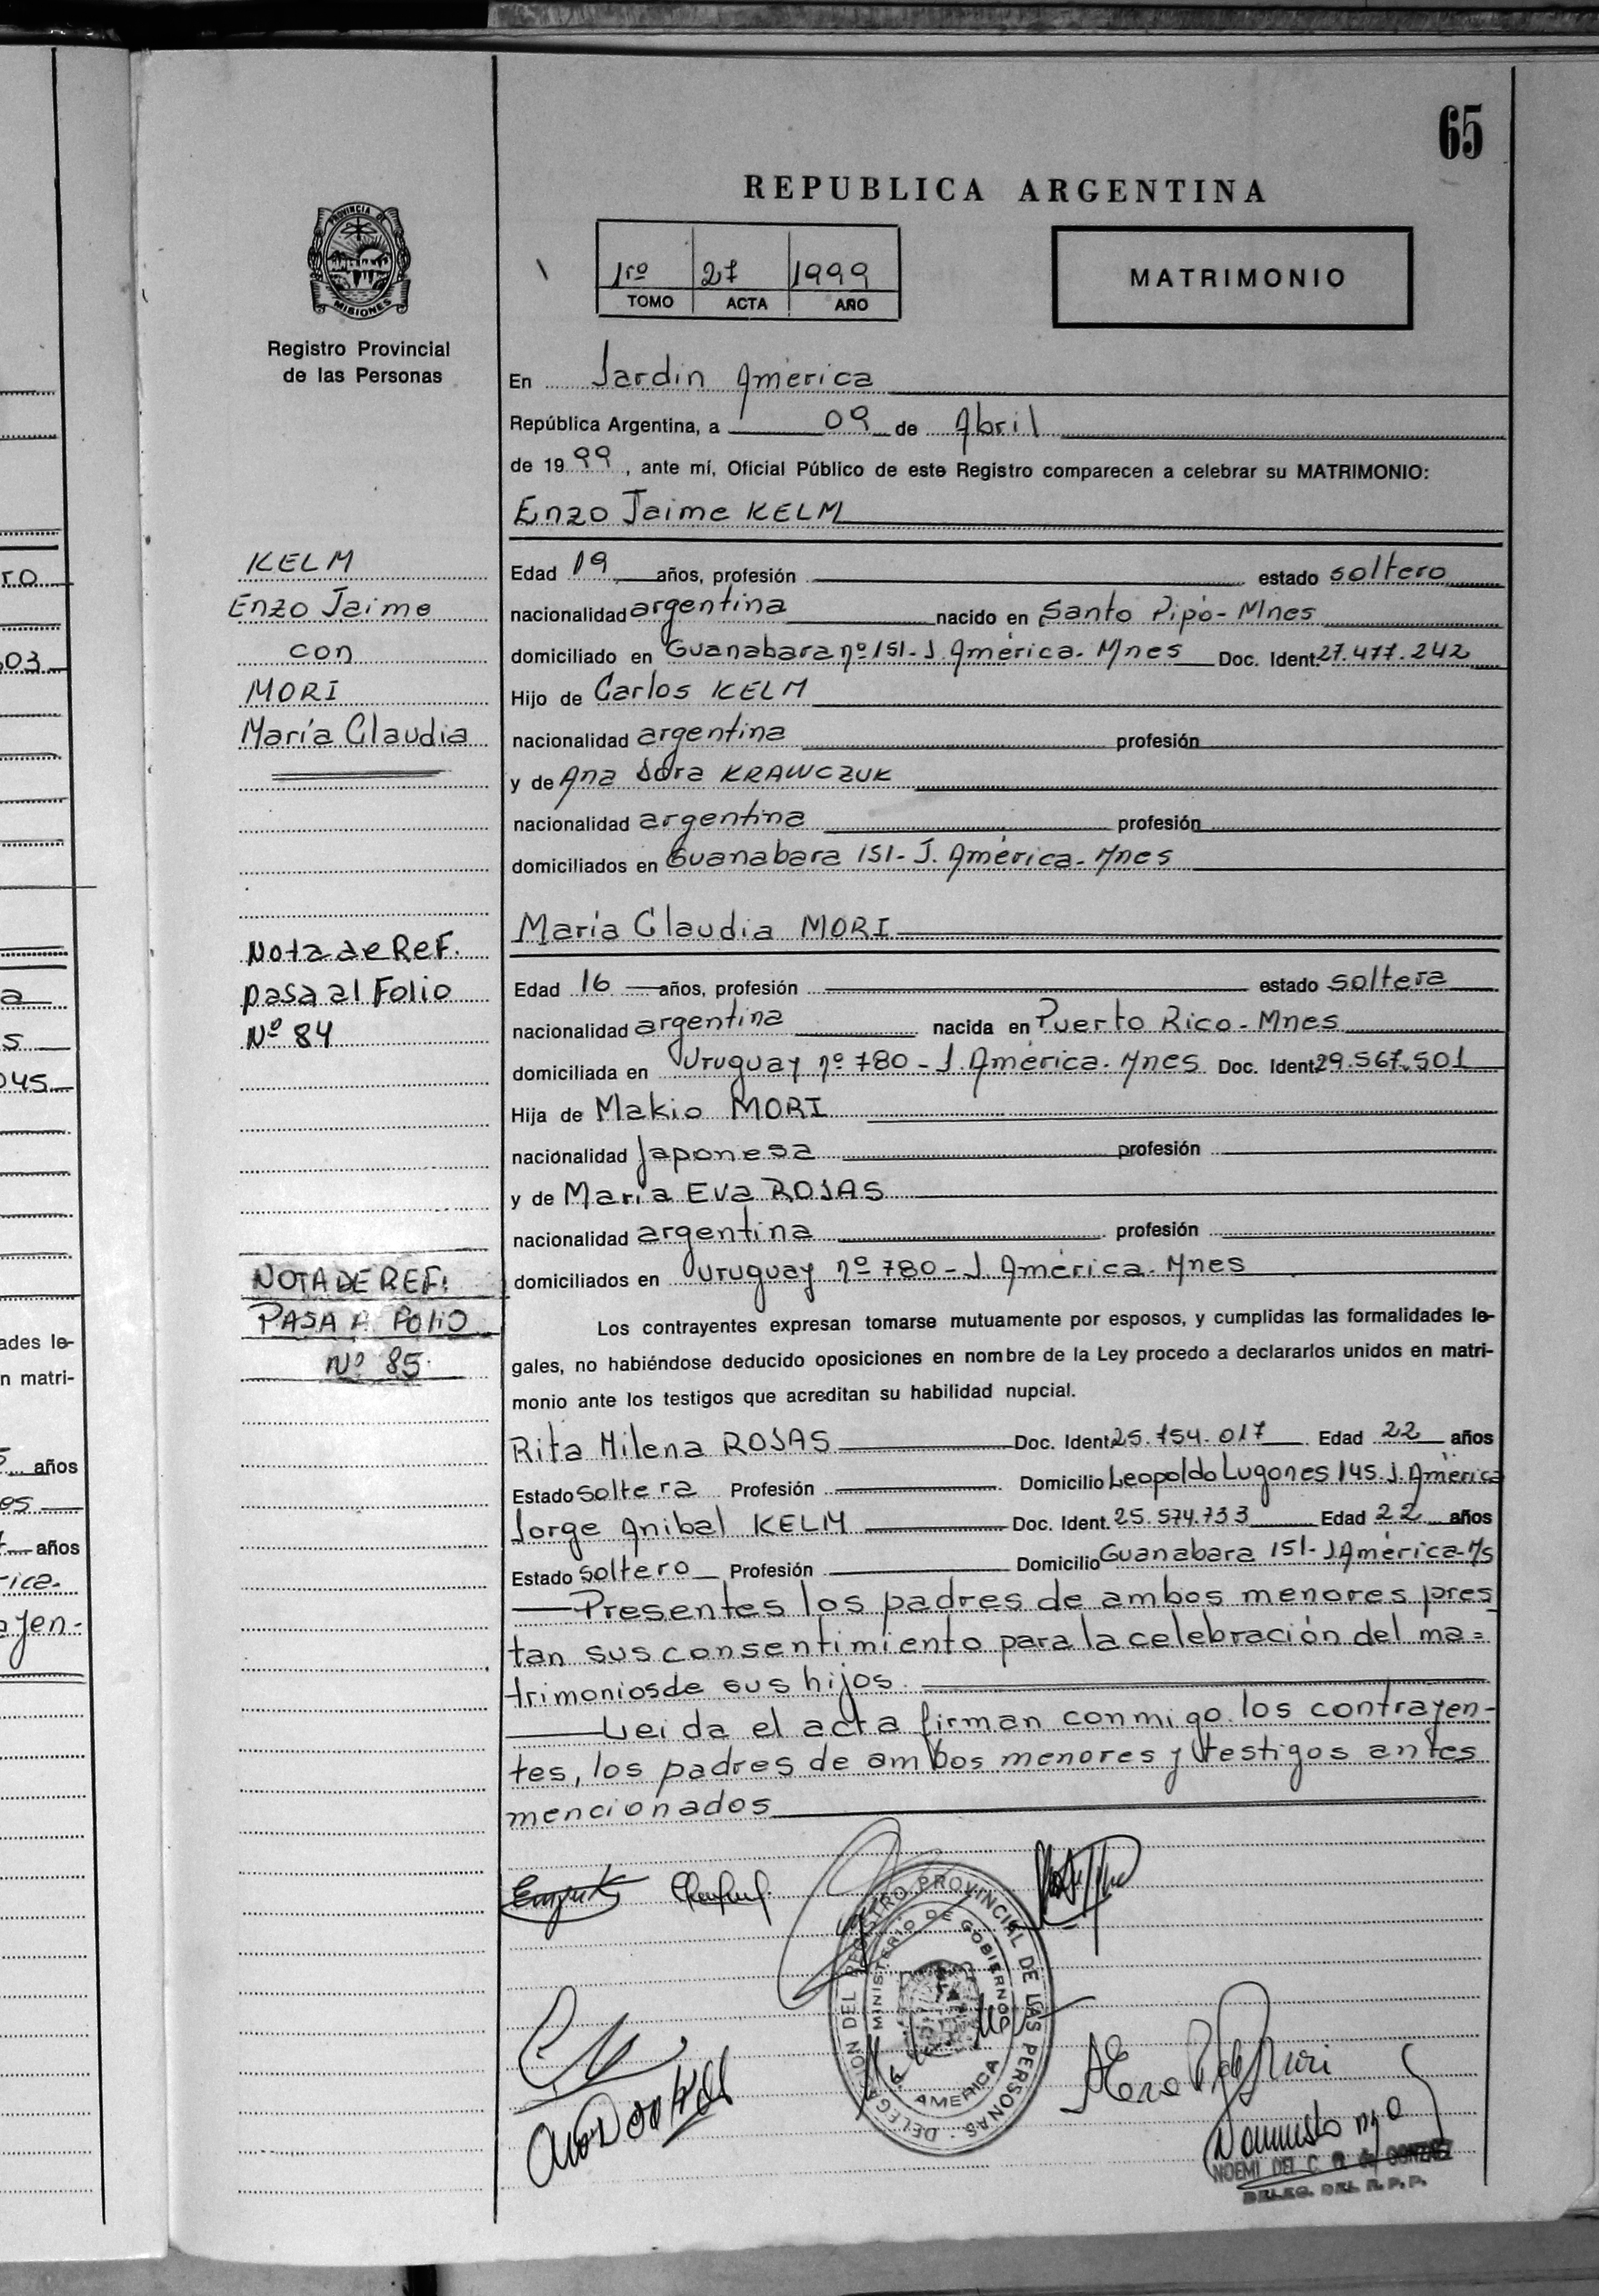 65
REPUBLICA ARGENTINA
PROVINCIA DE
MISIONES
Registro Provincial
de las Personas
1ro 27 1999
TOMO ACTA AÑO
MATRIMONIO
En Jardin América
República Argentina, a 09 de Abril
de 1999, ante mí, Oficial Público de este Registro comparecen a celebrar su MATRIMONIO:
Enzo Jaime KELM
KELM
Enzo Jaime
con
MORI
María Claudia
Edad 19 años, profesión estado soltero
nacionalidad argentina nacido en Santo Pipó-Mnes
domiciliado en Guanabara nº 151-J.América-Mnes Doc. Ident. 27.477.242
Hijo de Carlos KELM
nacionalidad argentina profesión
y de Ana Dora KRAWCZUK
nacionalidad argentina profesión
domiciliados en Guanabara 151-J. América-Mnes
María Claudia MORI
Nota de Ref.
pasa al Folio
Nº 84
Edad 16 años, profesión estado soltera
nacionalidad argentina nacida en Puerto Rico-Mnes
domiciliada en Uruguay nº 780-J.América-Mnes Doc. Ident. 29.567.501
Hija de Makio MORI
nacionalidad Japonesa profesión
y de María Eva ROJAS
nacionalidad argentina profesión
domiciliados en Uruguay nº 780-J.América-Mnes
NOTA DE REF:
PASA A FOLIO
Nº 85
Los contrayentes expresan tomarse mutuamente por esposos, y cumplidas las formalidades le-
gales, no habiéndose deducido oposiciones en nombre de la Ley procedo a declararlos unidos en matri-
monio ante los testigos que acreditan su habilidad nupcial.
Rita Milena ROJAS Doc. Ident. 25.754.017 Edad 22 años
Estado soltera Profesión Domicilio Leopoldo Lugones 145.J.América
Jorge Anibal KELM Doc. Ident. 25.574.733 Edad 22 años
Estado soltero Profesión Domicilio Guanabara 151-J.América-Ms
Presentes los padres de ambos menores pres
tan sus consentimiento para la celebración del ma=
trimonios de sus hijos.
Leida el acta firman conmigo los contrayen-
tes, los padres de ambos menores y testigos antes
mencionados
DELEGACION DEL REGISTRO PROVINCIAL DE LAS PERSONAS
MINISTERIO DE GOBIERNO
AMERICA
NOEMI DEL C. R. de GONZALEZ
DELEG. DEL R.P.P.
ro
03
a
s
045
ades le-
n matri-
años
es
años
rica.
ayen-